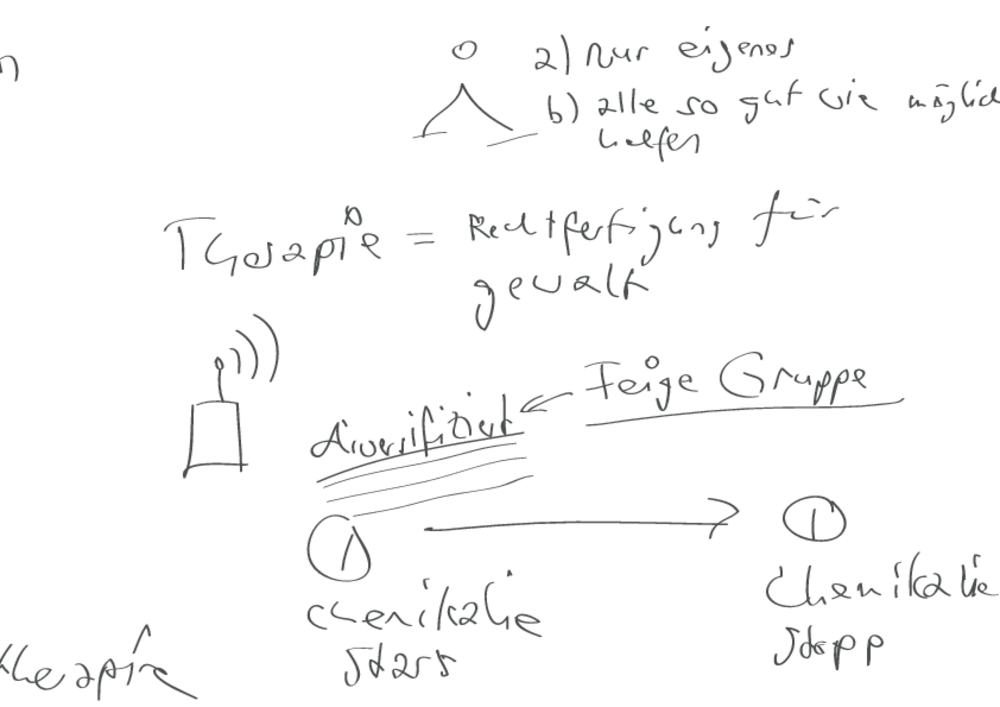 n
a) nur eigenes
b) alle so gut wie möglich
helfen
Therapie = Rechtfertigung für
gewalt
Feige Gruppe
diversifiziert
1
1
chemikalie
start
Chemikalie
stopp
therapie